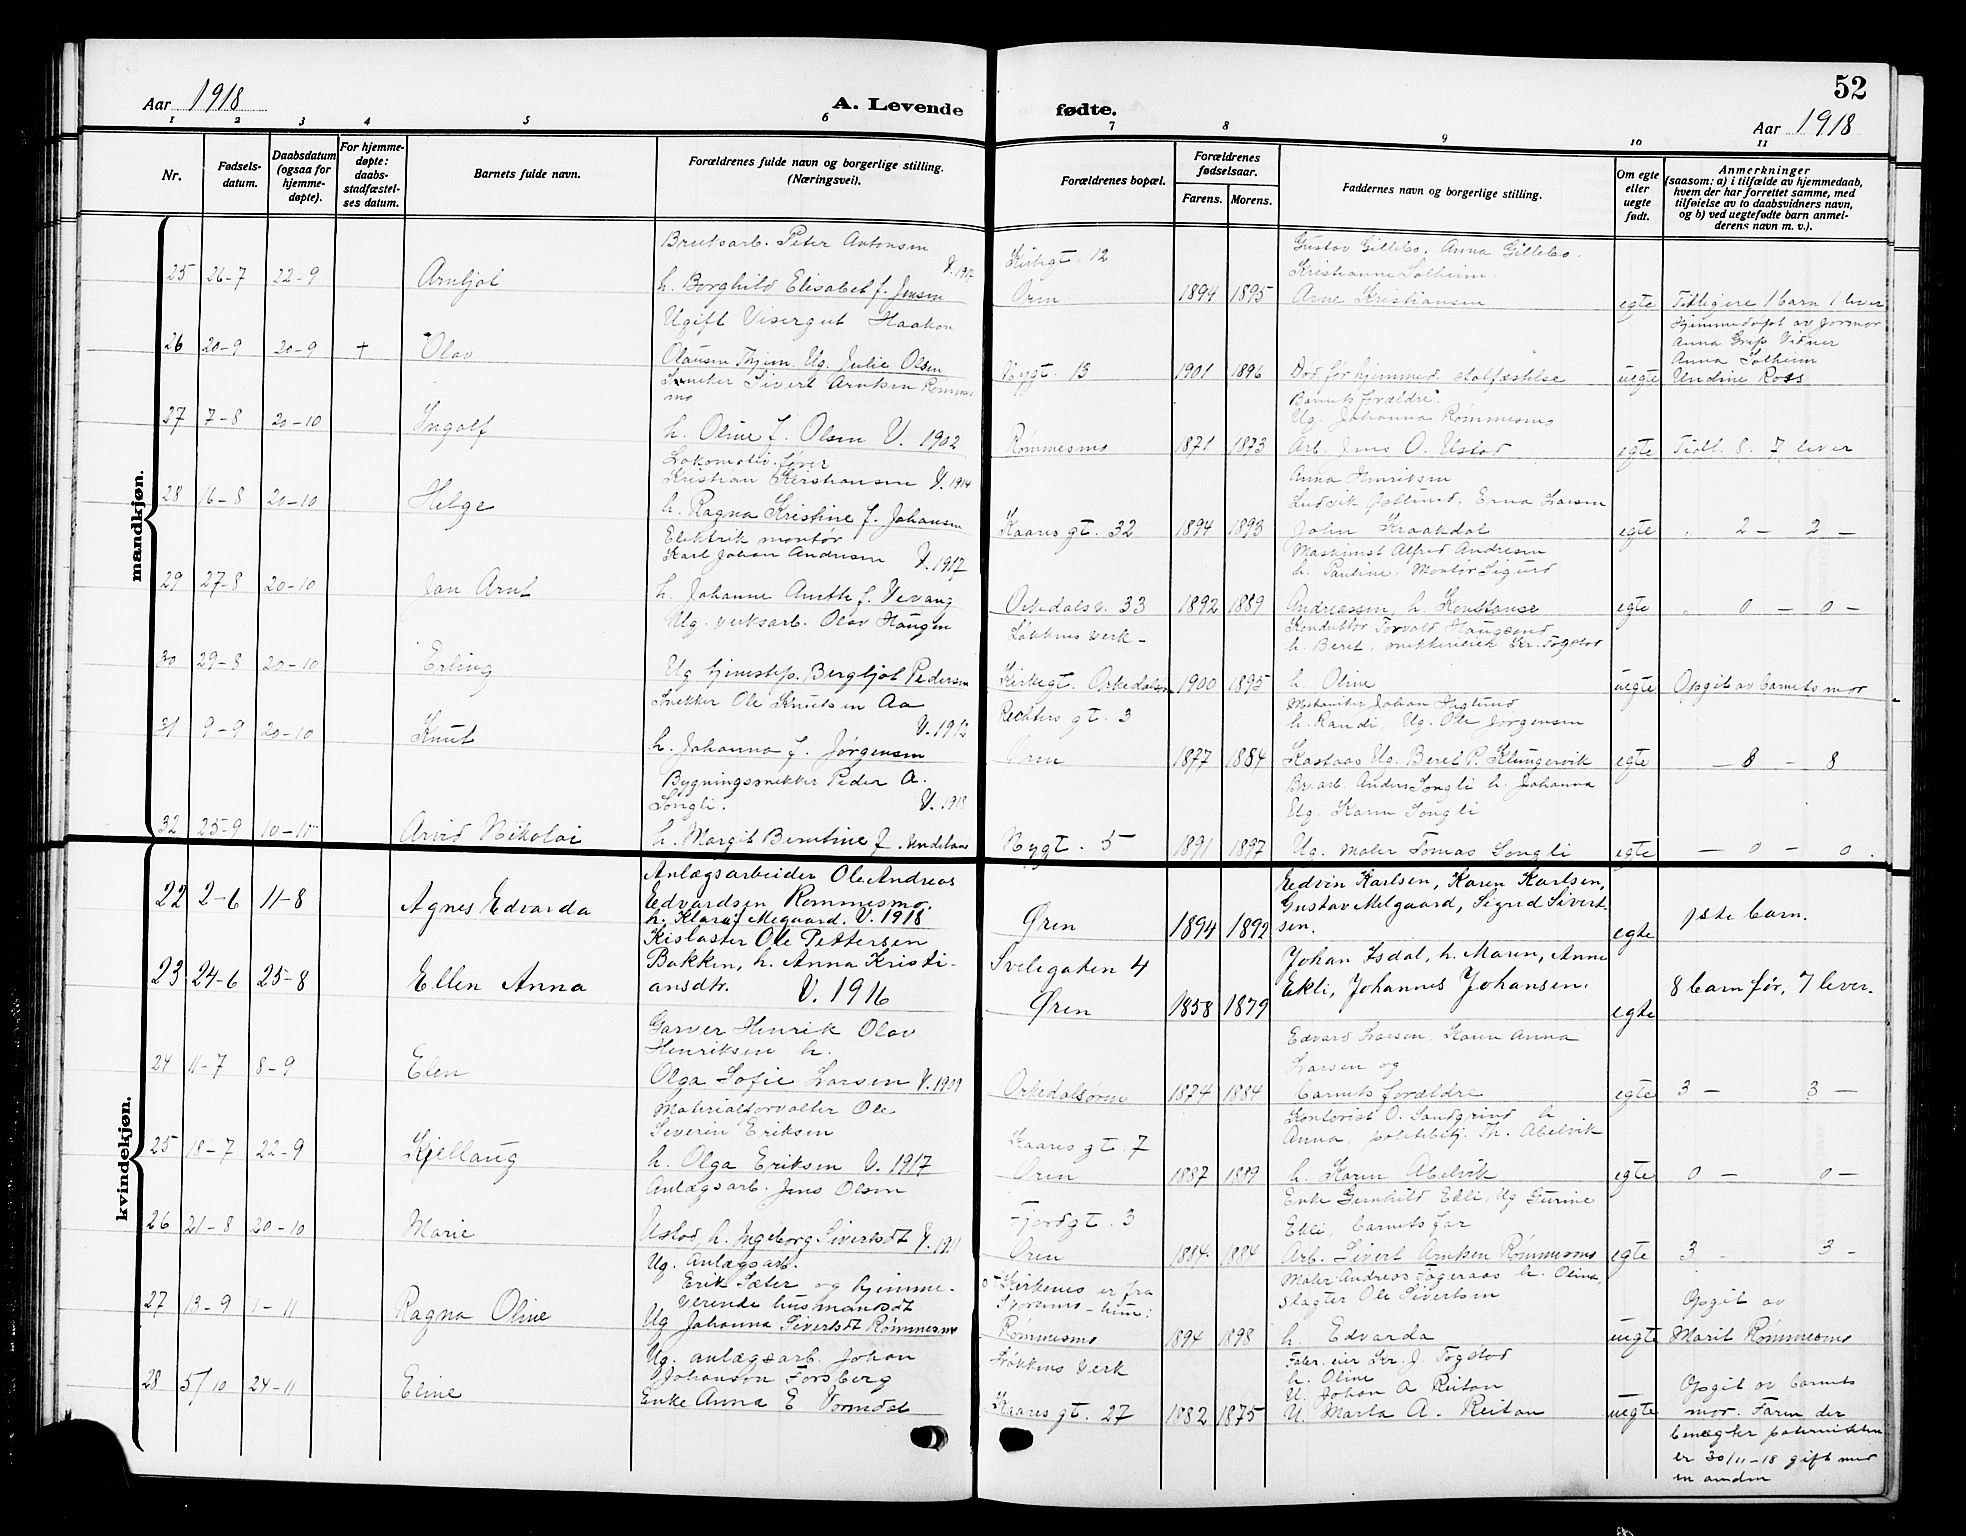 52
Aar 1918
A. Levende
fødte.
Aar 1918
1 2 3 4 5 6 7 8 9 10 11
Nr.
Fødsels-
datum.
Daabsdatum
(ogsaa for
hjemme-
døpte).
For hjemme-
døpte:
daabs-
stadfæstel-
ses datum.
Barnets fulde navn.
Forældrenes fulde navn og borgerlige stilling.
(Næringsvei).
Forældrenes bopæl.
Forældrenes
fødselsaar.
Farens. Morens.
Faddernes navn og borgerlige stilling.
Om egte
eller
uegte
født.
Anmerkninger
(saasom: a) i tilfælde av hjemmedaab,
hvem der har forrettet samme, med
tilføielse av to daabsvidners navn,
og b) ved uegtefødte barn anmel-
derens navn m. v.).
mandkjøn.
Brutsarb. Peter Antonsen
V. 1917
Kirkegt. 12
Gustav Gillebo, Anna Gillebo.
Kristianne Solheim.
25 26-7 22-9 Arnljot h. Borghild Elisabet f. Jensen Øren 1894 1895 Arne Kristiansen egte Tidligere 1 barn 1 lever
Ugift Visergut Haakon
Hjemmedøpt av jormor
Anna Grip Vidner
Anna Solheim
26 20-9 20-9 + Olav Olausen Thjem, Ug. Julie Olsen Nygt. 13 1901 1896 Død før hjemmed. statfæstelse uegte Undine Ross
Snekker Sivert Arntsen Rømmes-
mo
Barnets forældre.
Ug. Johanna Rømmesmo
27 7-8 20-10 Ingolf h. Oline f. Olsen V. 1902 Rømmesmo 1871 1873 Arb. Jens O. Ustad egte Tidl. 8. 7 lever
Lokomotivfører
Kristian Kristiansen V. 1914
Anna Henriksen
Ludvik Østlund, Erna Larsen
28 16-8 20-10 Helge h. Ragna Kristine f. Johansen Kaares gt. 32 1894 1893 John Kraakdal egte " 2 - 2 -
Elektrik montør
Karl Johan Andresen V. 1917
Maskinist Alfred Andresen
h. Pauline, Montør Sigurd
29 27-8 20-10 Jan Arnt h. Johanne Anette f. Vevang Orkedalsv. 33 1892 1889 Andreassen, h. Konstanse egte " 0 - 0 -
Ug. verksarb. Olav Haugen
Løkkens verk -
Konduktør Torvald Haugsund
h. Beret, snekkerieier Kr. Togstad
30 29-8 20-10 Erling Ug tjenestep. Bergljot Pedersen Kirkegt. Orkedalsøren 1900 1895 h. Oline uegte Opgit av barnets mor
Snekker Ole Knutsen Aa
V. 1912
Rechters gt. 3
Mekaniker Johan Høglund
h. Randi, Ug. Ole Jørgensen
31 9-9 20-10 Knut h. Johanna f. Jørgensen Øren 1877 1884 Kastaas Ug. Beret P. Klungervik egte - 8 - 8
Bygningssnekker Peder A.
Songli. V. 1918
Br.arb. Anders Songli h. Johanna
Ug. Karen Songli
32 25-9 10-11 Arvid Nikolai h. Margit Berntine f. Nygt. 5 1891 1897 Ug. maler Tomas Songli egte - 0 - 0.
kvindekjøn.
22 2-6 11-8 Agnes Edvarda
Anlægsarbeider Ole Andreas
Edvardsen Rømmesmo.
h. Klara f. Megaard. V. 1918
Øren 1894 1892
Edvin Karlsen, Karen Karlsen,
Gustav Melgaard, Sigrid Sivert-
sen.
egte 1ste barn.
23 24-6 25-8 Ellen Anna
Kislaster Ole Pettersen
Bakken, h. Anna Kristi-
ansdtr. V. 1916
Svelegaten 4
Øren 1858 1879
Johan Isdal, h. Maren, Anne
Ekli, Johannes Johansen.
egte 8 barn før, 7 lever.
Garver Henrik Olav
Henriksen h.
Edvard Larsen, Karen Anna
Larsen og
24 11-7 8-9 Elen Olga Sofie Larsen V. 1909 Orkedalsøren 1874 1884 barnets forældre egte 3 - 3 -
Materialforvalter Ole
Severin Eriksen
Kaares gt. 7
Kontorist O. Sandgrind h
Anna, politibetj. Th. Abelvik
25 18-7 22-9 Kjellaug h. Olga Eriksen V. 1917 Øren 1887 1889 h. Karen Abelvik egte 0 - 0 -
Anlægsarb. Jens Olsen
Fjordgt. 3
Enke Gunhild Ekli, Ug Gurine
Ekli, barnets far
26 21-8 20-10 Marie Ustad h. Ingeborg Sivertsdt V. 1911 Øren 1884 1884 Arb. Sivert Arntsen Rømmesmo egte 3 - 3 -
Ug. Anlægsarb.
Erik Sæter og hjemme-
værende husmandsdt
Kirkenes er fra
Maler Andreas Fageraas h. Olina,
slagter Ole Sivertsen
Opgit av
27 13-9 1-11 Ragna Oline Ug Johanna Sivertsdt Rømmesmo Rømmesmo 1894 1898 h. Edvarda uegte Marit Rømmesmo
Ug. anlægsarb. Johan
Johanson Forsberg
Løkkens Verk
Fabr. eier Kr. J. Togstad
h. Oline
U. Johan A Reitan
28 5/10 24-11 Eline Enke Anna E Vormdal Kaares gt. 27 1882 1875 U. Marta A. Reitan uegte
Opgit av barnets
mor. Faren der
benægter paterniteten
er 30/11-18 gift med
en anden